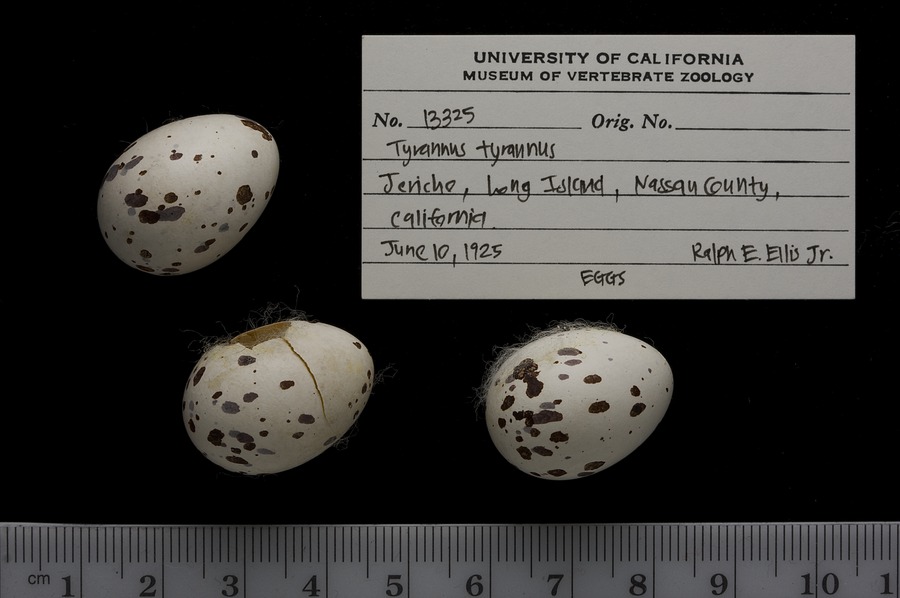 UNIVERSITY OF CALIFORNIA
MUSEUM OF VERTEBRATE ZOOLOGY
No. 13325 Orig. No.
Tyrannus tyrannus
Jericho, Long Island, Nassau County,
California.
June 10, 1925 Ralph E. Ellis Jr.
EGGS
cm 1 2 3 4 5 6 7 8 9 10 1